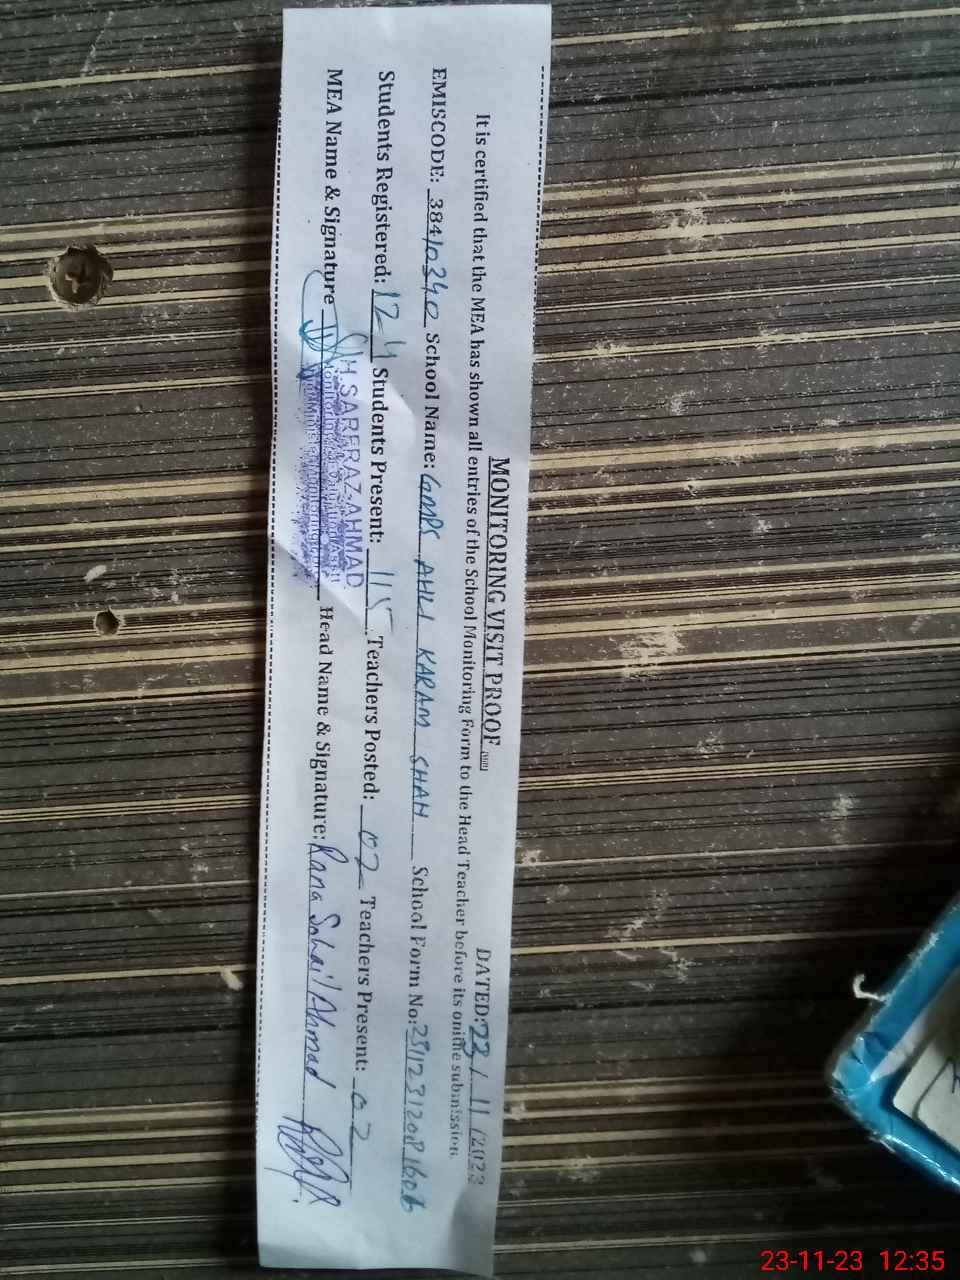 MONITORING VISIT PROOF
DATED: 23/11/2023
It is certified that the MEA has shown all entries of the School Monitoring Form to the Head Teacher before its online submission.
EMISCODE: 38410340 School Name: GMPS AHLI KARAM SHAH School Form No:
Students Registered: 124 Students Present: 115 Teachers Posted: 02 Teachers Present: 02
MEA Name & Signature Head Name & Signature: Rana Sohail Ahmad
SARFRAZ AHMAD
23-11-23 12:35